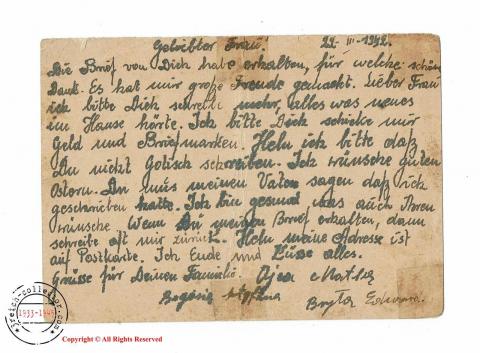 Geliebter Frau! 22-III-1942.
Die Brief von Dich habe erhalten, für welche schöne
Dank. Es hat mir große Freude gemacht. Lieber Frau
ich bitte Dich schreibe mehr, alles was neues
im Hause hörte. Ich bitte Dich schicke mir
Geld und Briefmarken. Heln ich bitte daß
Du nickt Gotisch schreiben. Ich wünsche guten
Ostern. Du mus meinen Vater sagen daß ich
geschrieben hatte. Ich bin gesund was auch Ihnen
wünsche. Wenn Du meinen Brief erhalten, dann
schreibe oft mir zurück. Heln meine Adresse ist
auf Postkarte. Ich Ende und Küsse alles.
Grüsse für Deinen Familie.
Bryła
3reich-collector.com
1933-1945
Copyright © All Rights Reserved